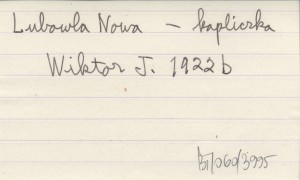 Lubowla Nowa – kapliczka
Wiktor J. 1922 b
BI/060/3995